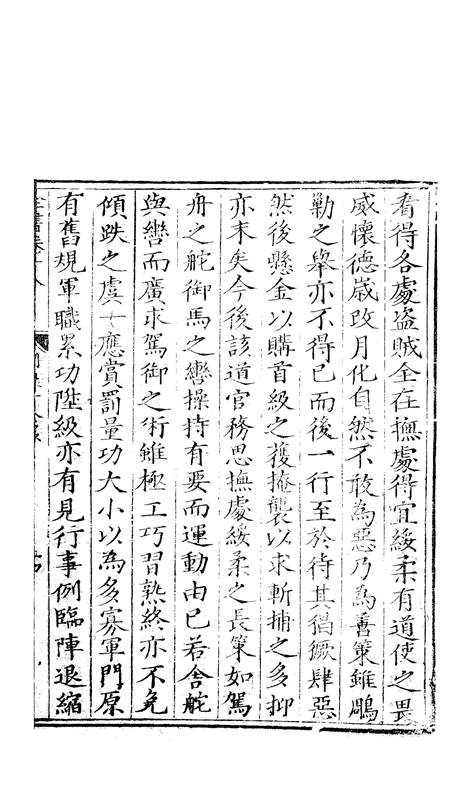 看得各處盜賊全在撫處得宜綏柔有道使之畏
威懷德歲改月化自然不敢為惡乃為善策雖鵰
勦之舉亦不得已而後一行至於待其猖獗肆惡
然後懸金以購首級之獲掩襲以求斬捕之多抑
亦末矣今後該道官務思撫處綏柔之長策如駕
舟之舵御馬之轡操持有要而運動由已若舍舵
與轡而廣求駕御之術雖極工巧習熟終亦不免
傾跌之虞一應賞罰量功大小以為多寡軍門原
有舊規軍職累功陞級亦有見行事例臨陣退縮
全書卷十八